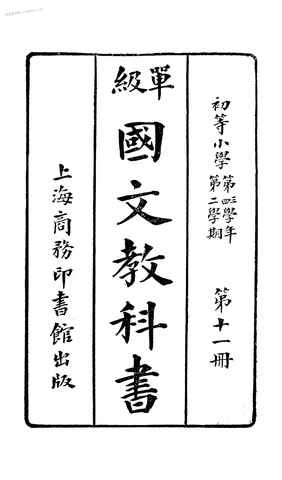 初等小學
第三四學年
第二學期
第十一冊
單級
國文教科書
上海商務印書館出版